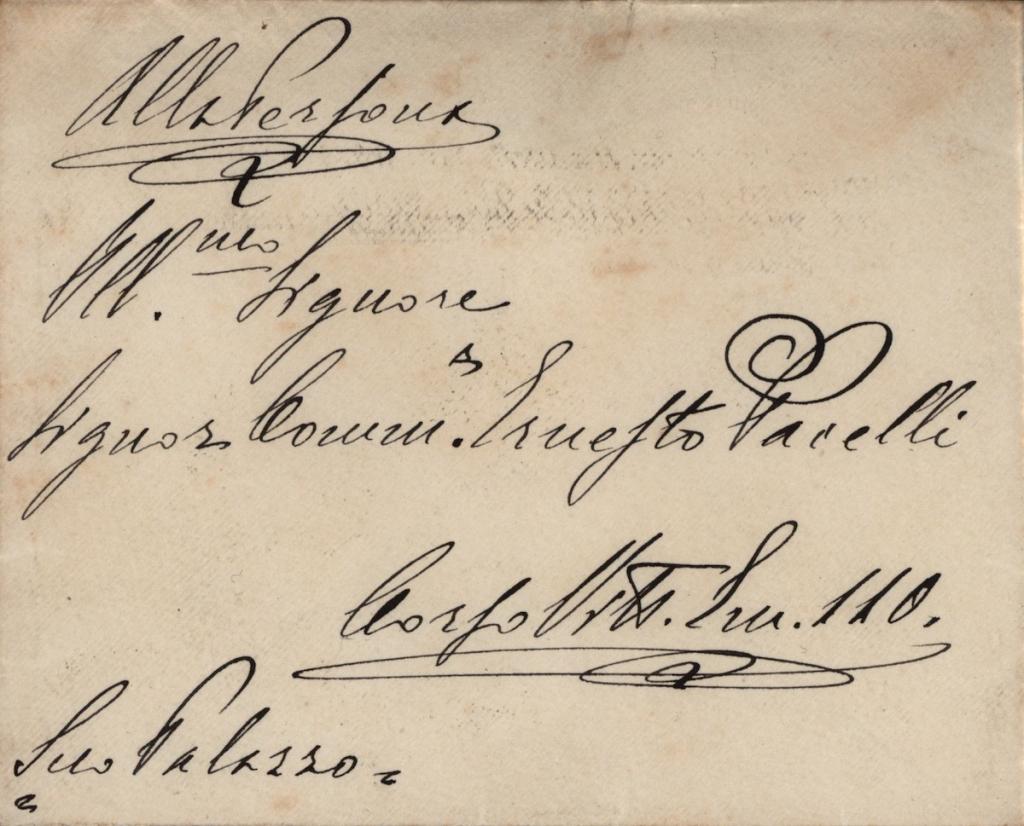 Alla Persona
Ill.mo Signore
Signor Comm. Ernesto Pacelli
Corso Vitt. Em. 110.
Suo Palazzo